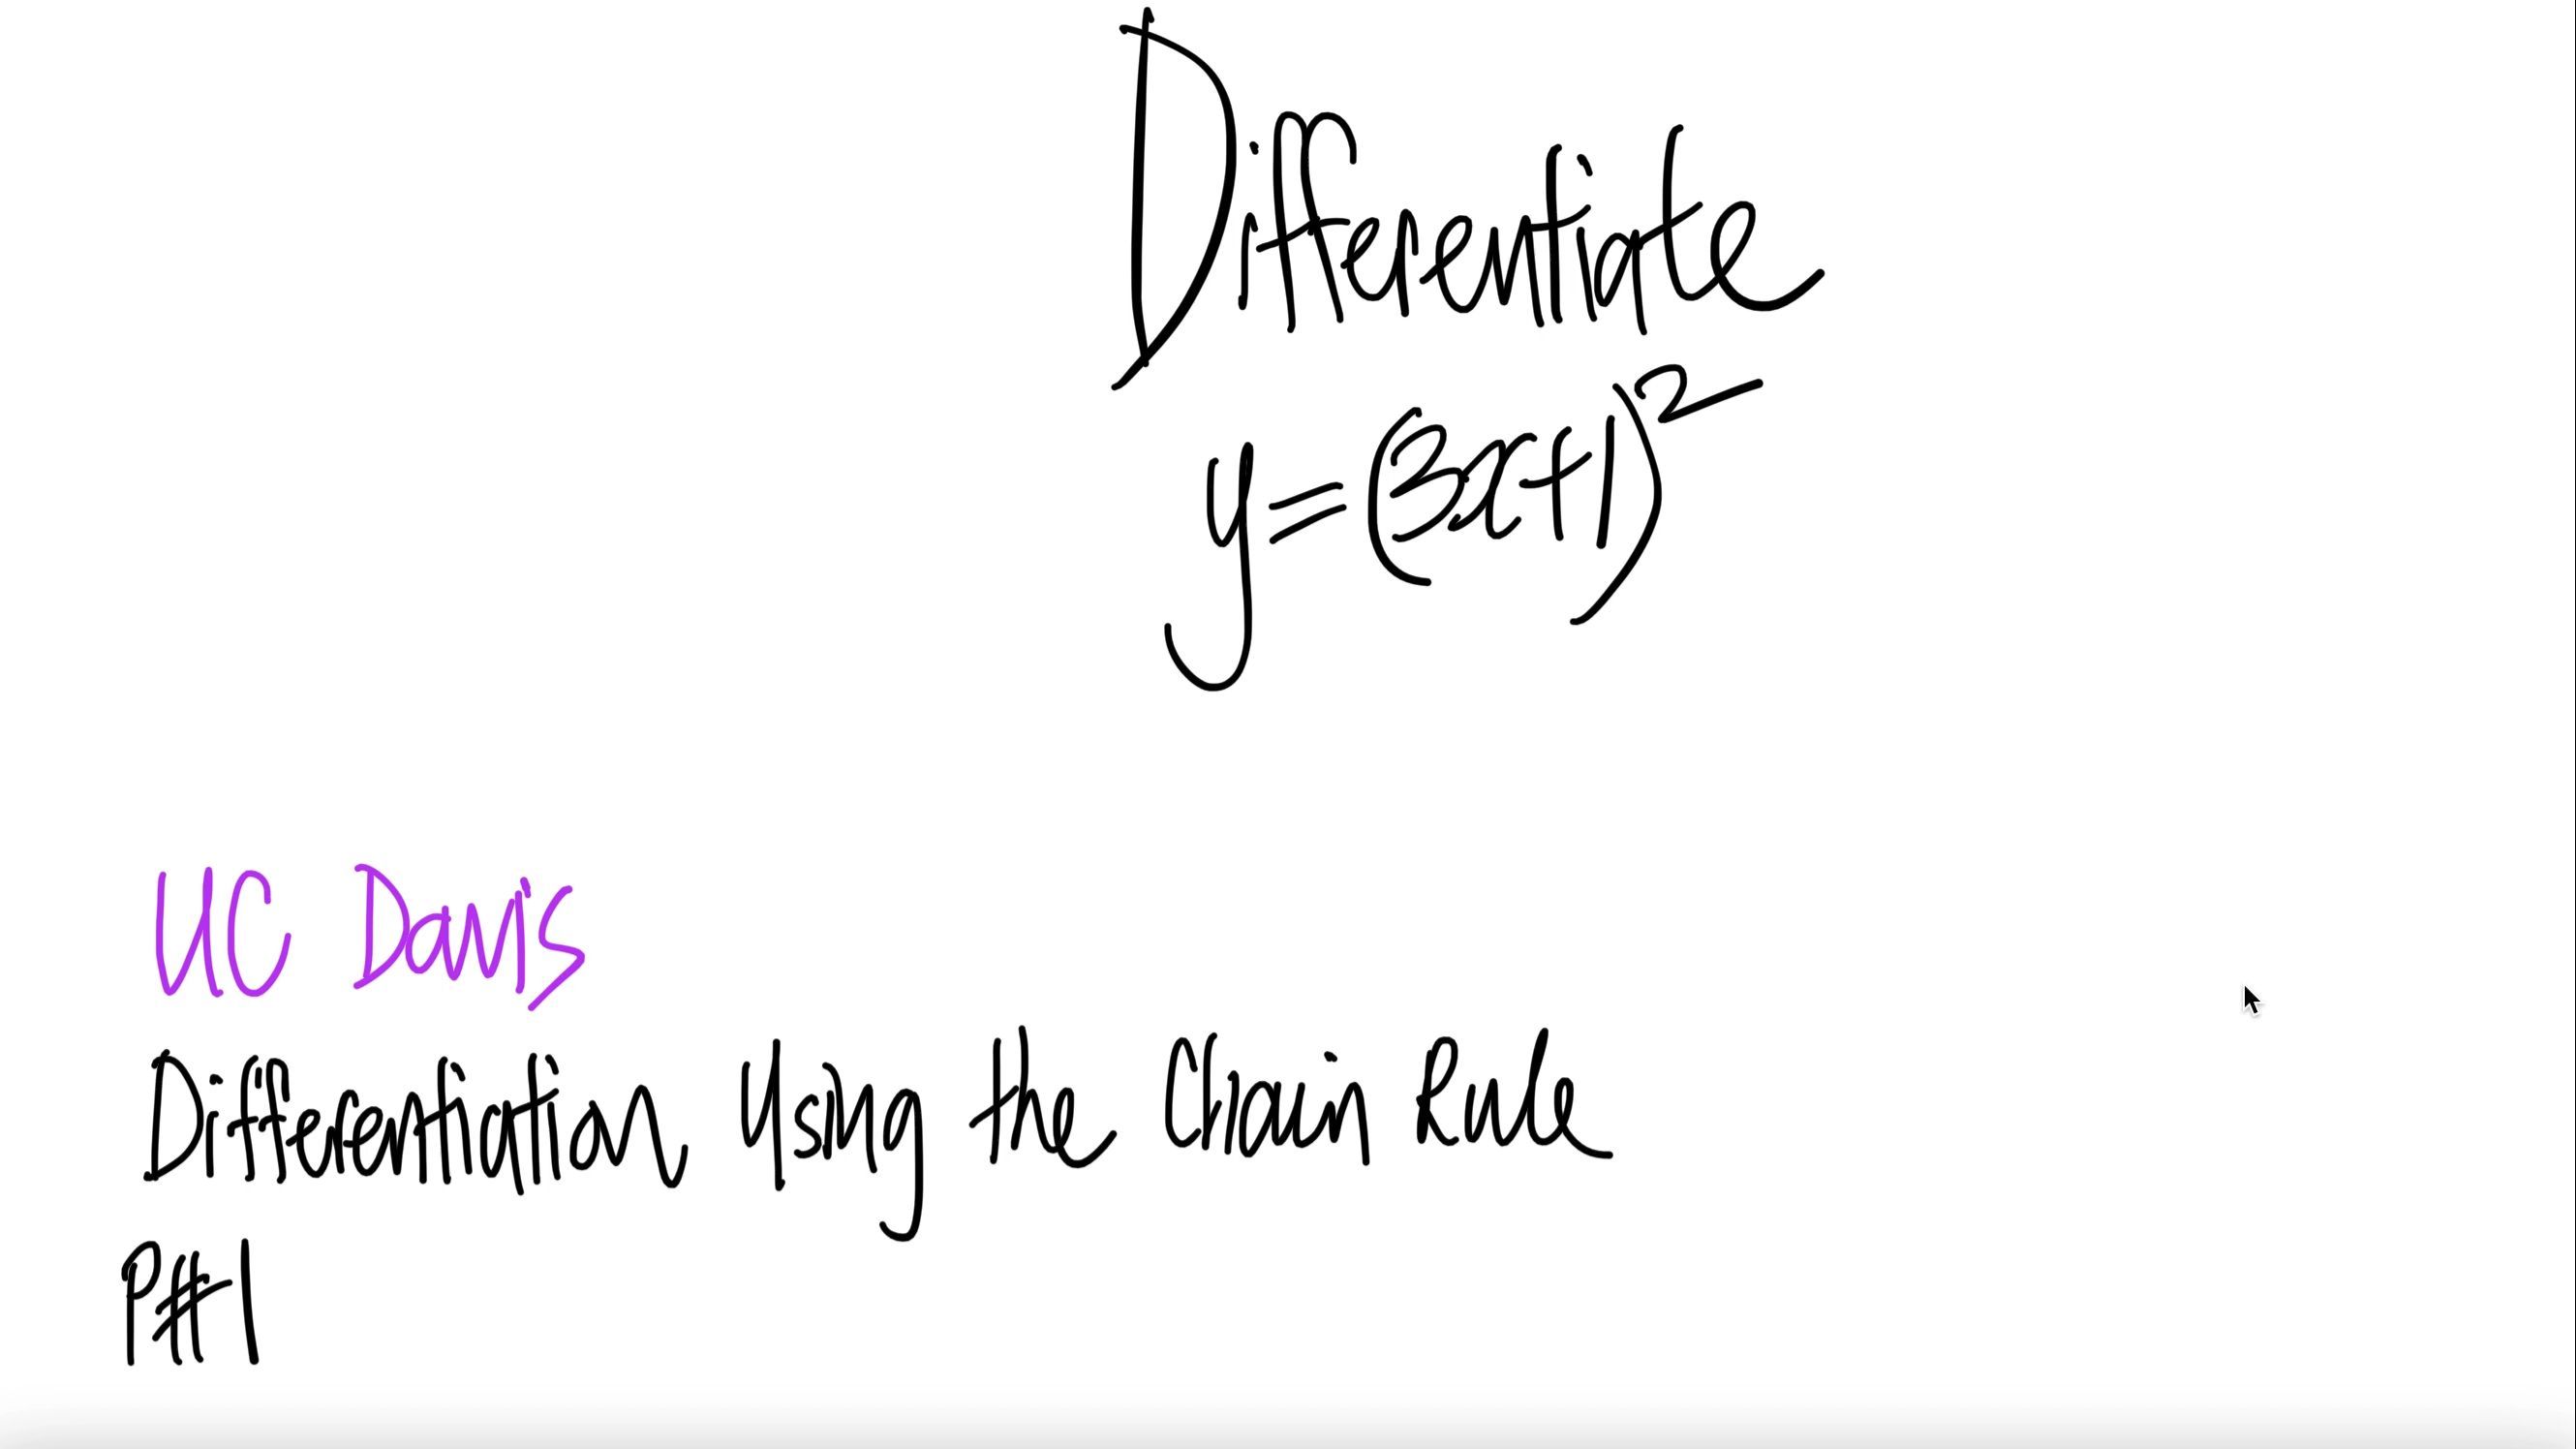 Differentiate
y=(3x+1)²
UC Davis
Differentiation Using the Chain Rule
P#1